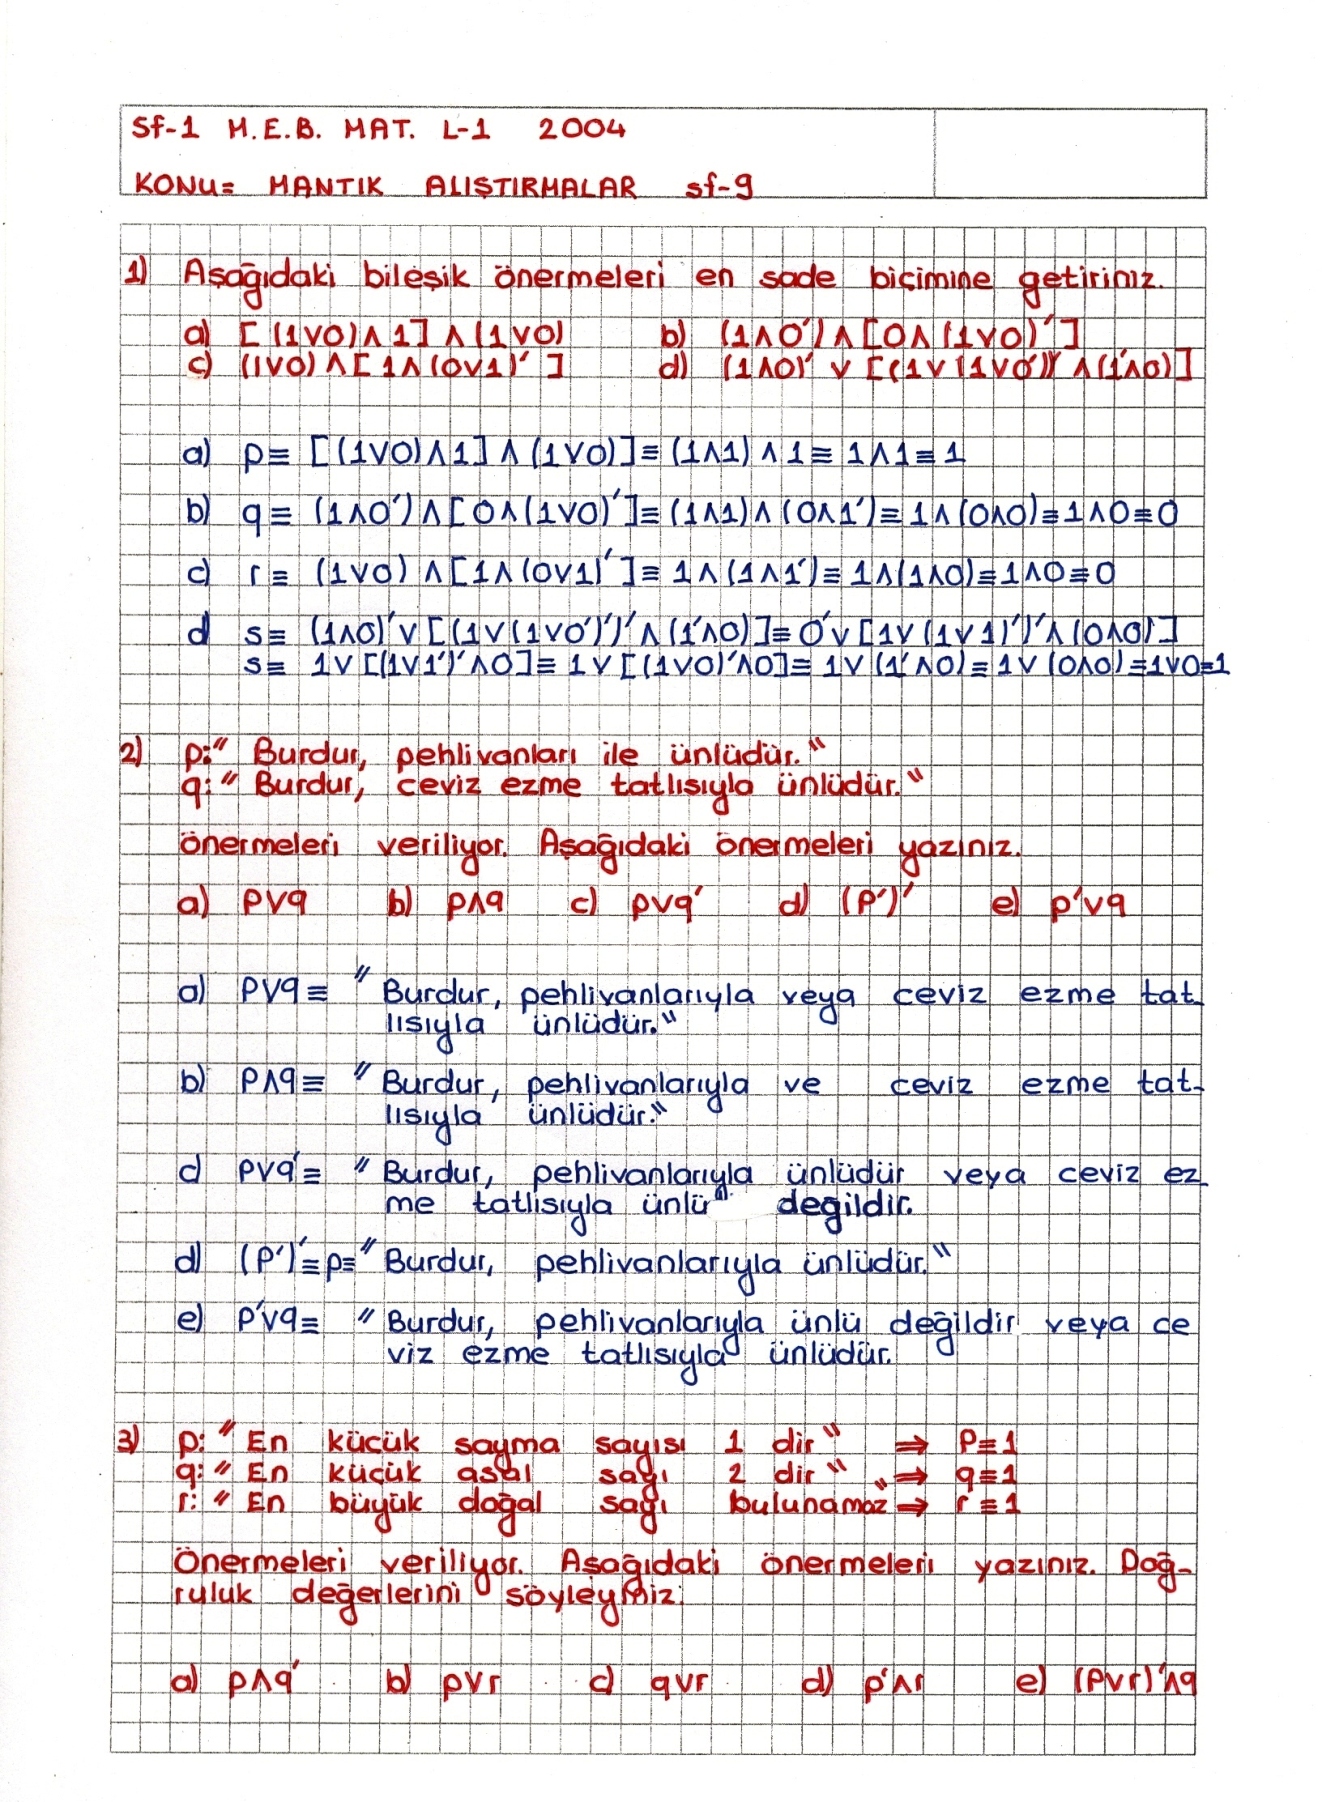 Sf-1 M.E.B. MAT. L-1 2004
KONU= MANTIK ALIŞTIRMALAR sf-9
1) Aşağıdaki bileşik önermeleri en sade biçimine getiriniz.
a) [(1∨0)∧1]∧(1∨0) b) (1∧0')∧[0∧(1∨0)']
c) (1∨0)∧[1∧(0∨1)'] d) (1∧0)' ∨ [(1∨(1∨0')')' ∧(1'∧0)]
a) p≡ [(1∨0)∧1]∧(1∨0)]≡ (1∧1)∧1≡ 1∧1≡1
b) q≡ (1∧0')∧[0∧(1∨0)']≡ (1∧1)∧(0∧1')≡ 1∧(0∧0)≡1∧0≡0
c) r≡ (1∨0)∧[1∧(0∨1)']≡ 1∧(1∧1')≡ 1∧(1∧0)≡1∧0≡0
d s≡ (1∧0)'∨[(1∨(1∨0')')'∧(1'∧0)]≡ 0'∨[1∨(1∨1)')'∧(0∧0)]
s≡ 1∨[(1∨1')'∧0]≡ 1∨[(1∨0)'∧0]≡ 1∨(1'∧0)≡ 1∨(0∧0)≡1∨0≡1
2) p:" Burdur, pehlivanları ile ünlüdür."
q:" Burdur, ceviz ezme tatlısıyla ünlüdür."
önermeleri veriliyor. Aşağıdaki önermeleri yazınız.
a) p∨q b) p∧q c) p∨q' d) (p')' e) p'∨q
a) p∨q≡ " Burdur, pehlivanlarıyla veya ceviz ezme tat-
lısıyla ünlüdür."
b) p∧q≡ " Burdur, pehlivanlarıyla ve ceviz ezme tat-
lısıyla ünlüdür."
c) p∨q'≡ " Burdur, pehlivanlarıyla ünlüdür veya ceviz ez
me tatlısıyla ünlü" değildir.
d) (p')'≡p≡" Burdur, pehlivanlarıyla ünlüdür."
e) p'∨q≡ " Burdur, pehlivanlarıyla ünlü değildir veya ce
viz ezme tatlısıyla ünlüdür.
3) p:" En küçük sayma sayısı 1 dir" ⇒ p≡1
q:" En küçük asal sayı 2 dir" ⇒ q≡1
r:" En büyük doğal sayı bulunamaz" ⇒ r≡1
Önermeleri veriliyor. Aşağıdaki önermeleri yazınız. Doğ-
ruluk değerlerini söyleyiniz.
a) p∧q' b) p∨r c) q∨r d) p'∧r e) (p∨r)'∧q